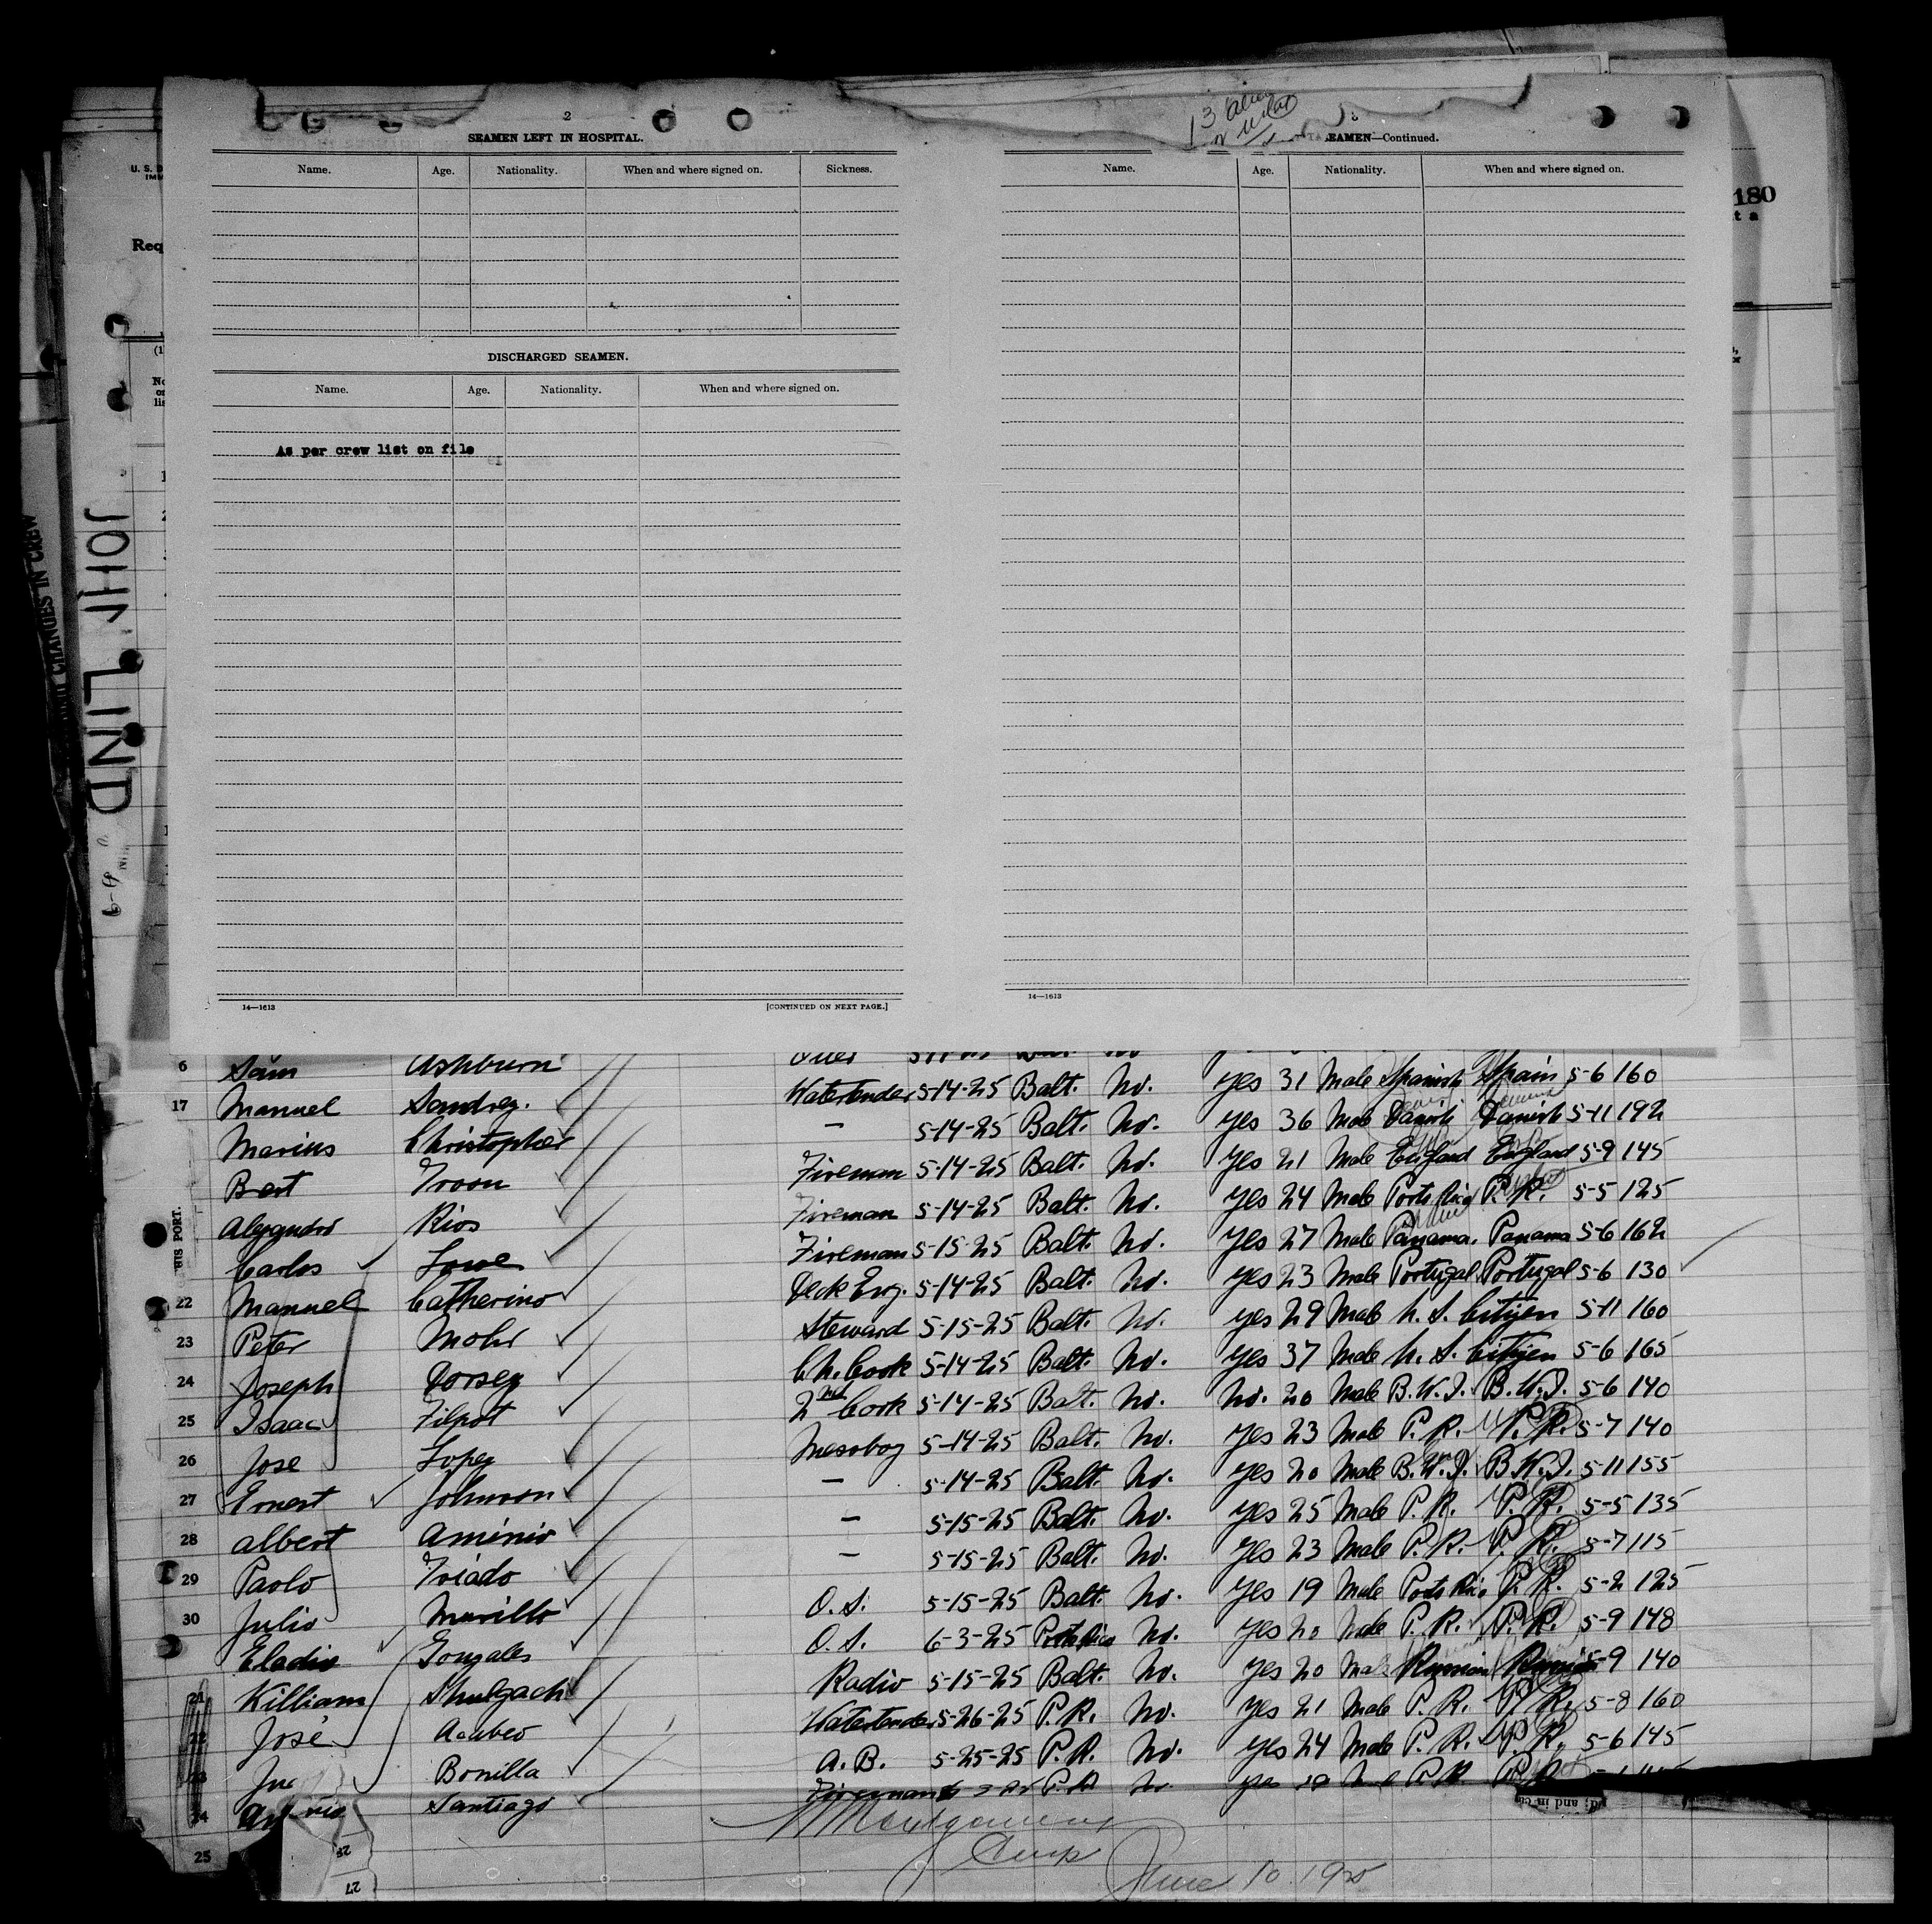 2
SEAMEN LEFT IN HOSPITAL.
Name. Age. Nationality. When and where signed on. Sickness.
DISCHARGED SEAMEN.
Name. Age. Nationality. When and where signed on.
As per crew list on file
14—1613 [CONTINUED ON NEXT PAGE.]
13
EAMEN—Continued.
Name. Age. Nationality. When and where signed on.
14—1613
180
t a
U. S. D
IMM
Req
JOHN LIND
CHANGES IN CREW
HIS PORT.
6 Sam Ashburn
17 Manuel Watertender 5-14-25 Balt. No. Yes 31 Male Spanish Spain 5-6 160
Marius Christopher — 5-14-25 Balt. No. Yes 36 Male Danish Danish 5-11 192
Bert Troon Fireman 5-14-25 Balt. No. Yes 21 Male England England 5-9 145
Alejandro Rios Fireman 5-14-25 Balt. No. Yes 24 Male Porto Rico P.R. 5-5 125
Carlos Lowe Fireman 5-15-25 Balt. No. Yes 27 Male Panama. Panama 5-6 162
22 Manuel Catherino Deck Eng. 5-14-25 Balt. No. Yes 23 Male Portugal Portugal 5-6 130
23 Peter Mohr Steward 5-15-25 Balt. No. Yes 29 Male U. S. Citizen 5-11 160
24 Joseph Dorsey Ch. Cook 5-14-25 Balt. No. Yes 37 Male U. S. Citizen 5-6 165
25 Isaac Filpot 2nd Cook 5-14-25 Balt. No. No. 20 Male B.W.I. B.W.I. 5-6 140
26 Jose Lopez Messboy 5-14-25 Balt. No. Yes 23 Male P. R. P. R. 5-7 140
27 Ernest Johnson — 5-14-25 Balt. No. Yes 20 Male B.W.I. B.W.I. 5-11 155
28 Albert Aminio — 5-15-25 Balt. No. Yes 25 Male P. R. P. R. 5-5 135
29 Paolo Triado — 5-15-25 Balt. No. Yes 23 Male P. R. P. R. 5-7 115
30 Julio Murillo O. S. 5-15-25 Balt. No. Yes 19 Male Porto Rico P. R. 5-2 125
Eladio Gonzales O. S. 6-3-25 Porto Rico No. Yes 20 Male P. R. P. R. 5-9 148
21 William Shulgach Radio 5-15-25 Balt. No. Yes 20 Male Russian Russian 5-9 140
22 José Acubeo Watertender 5-26-25 P.R. No. Yes 21 Male P. R. P. R. 5-8 160
23 Bonilla A. B. 5-25-25 P.R. No. Yes 24 Male P. R. P. R. 5-6 145
24 Santiago Fireman P.R. No Yes 19 P.R. P.R.
25
Montgomery
June 10 1925
27